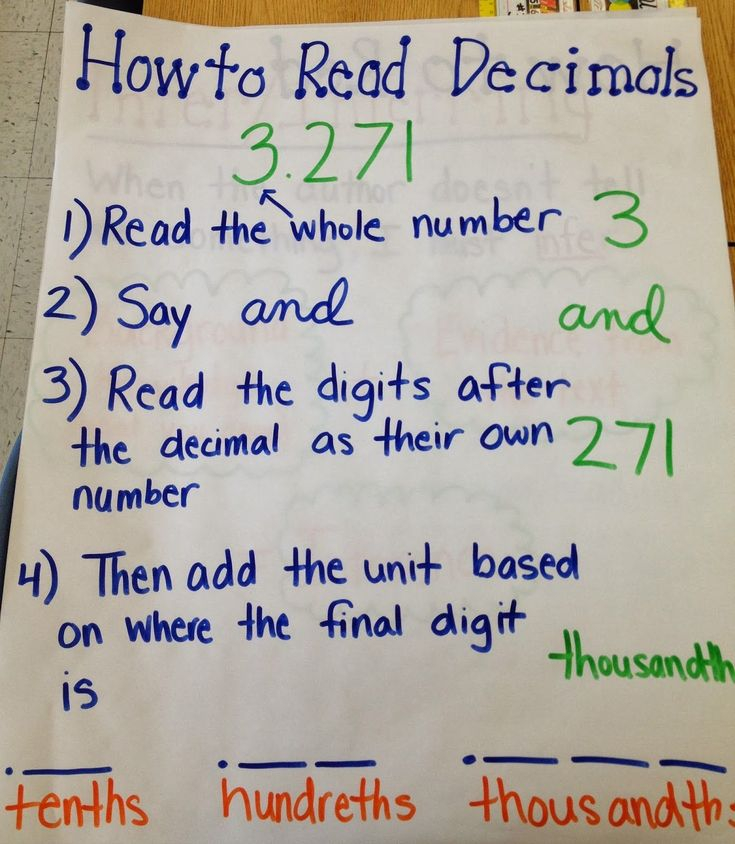 How to Read Decimals
3.271
1) Read the whole number 3
2) Say and and
3) Read the digits after
the decimal as their own 271
number
4) Then add the unit based
on where the final digit
is thousandth
. _ . _ _ . _ _ _
tenths hundreths thousandths